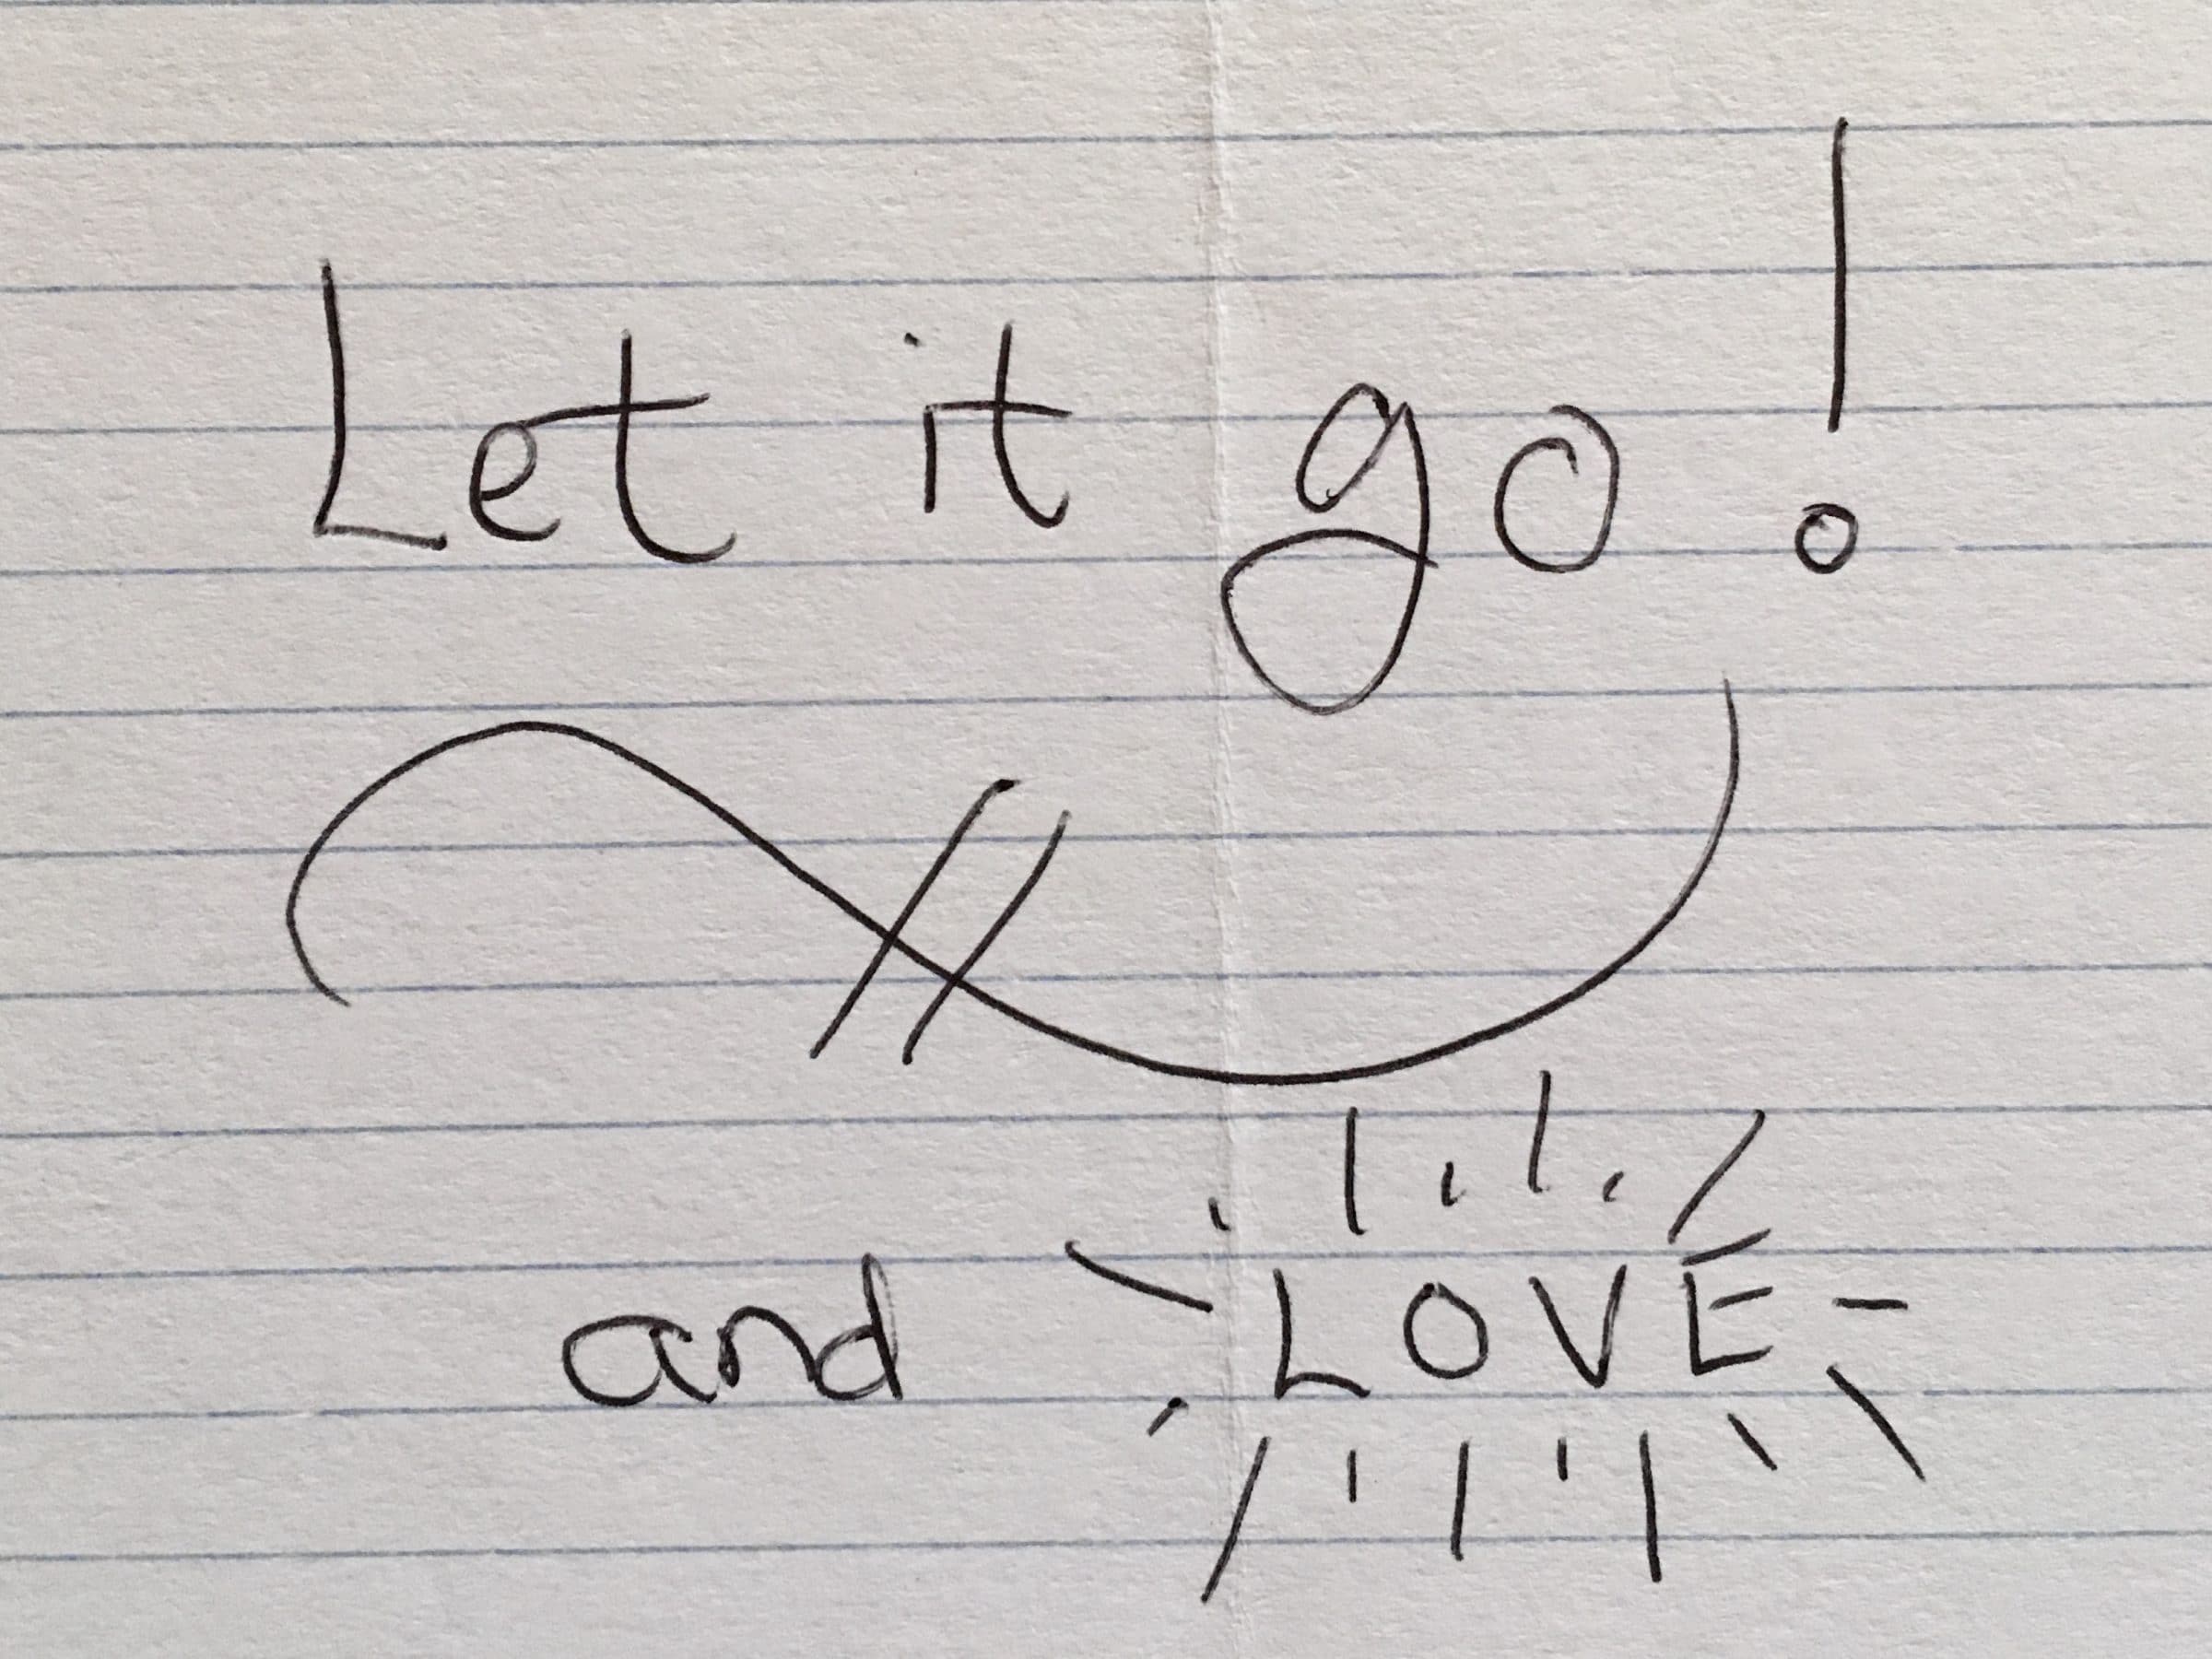 Let it go!
and LOVE